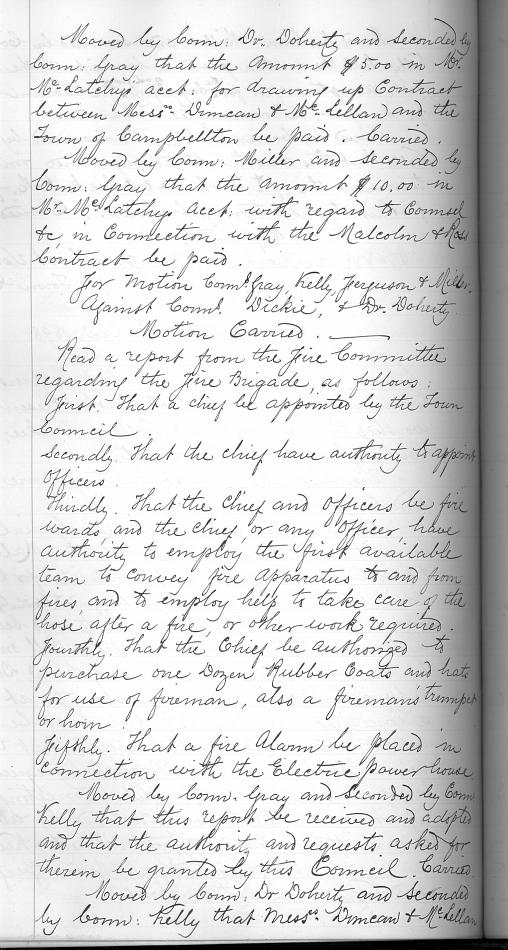 Moved by Conn: Dr. Doherty and seconded by
Conn: Gray that the amount $5.00 in Mr.
McLatchy's acct: for drawing up Contract
between Messrs Duncan & McLellan and the
Town of Campbellton be paid. Carried.
Moved by Conn: Miller and seconded by
Conn: Gray that the amount $10.00 in
Mr. McLatchys acct: with regard to Counsel
&c, in Connection with the Malcolm & Ross
Contract be paid.
For Motion Conns. Gray, Kelly, Ferguson & Miller.
Against Conns. Dickie, & Dr. Doherty.
Motion Carried.
Read a report from the Fire Committee
regarding the Fire Brigade, as follows:
First. That a chief be appointed by the Town
Council.
Secondly. That the chief have authority to appoint
officers.
Thirdly. That the Chief and officers be fire
wards, and the chief, or any officer have
authority to employ the first available
team to convey fire apparatus to and from
fires, and to employ help to take care of the
hose after a fire, or other work required.
Fourthly. That the Chief be authorized to
purchase one Dozen Rubber Coats and hats
for use of fireman, also a fireman's trumpet
or horn
Fifthly. That a fire Alarm be placed in
connection with the Electric power house
Moved by Conn. Gray and seconded by Conn
Kelly that this report be received and adopted
and that the authority and requests asked for
therein be granted by this Council. Carried
Moved by Conn: Dr Doherty and seconded
by Conn: Kelly that Messrs. Duncan & McLellan